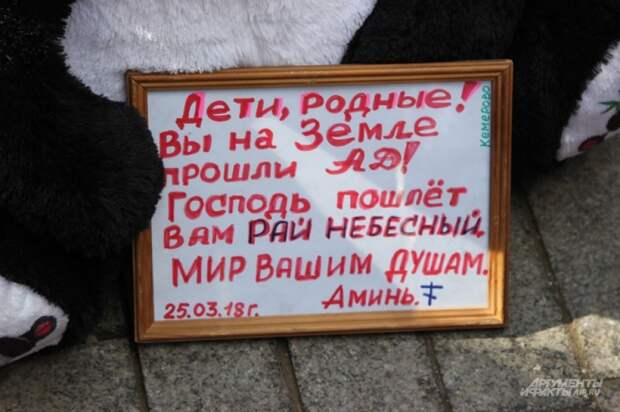 Дети, родные!
Вы на Земле
прошли АД!
Господь пошлёт
вам РАЙ НЕБЕСНЫЙ.
МИР ВАШИМ ДУШАМ.
25.03.18г. Аминь.
Кемерово
АРГУМЕНТЫ
И ФАКТЫ AIF.RU